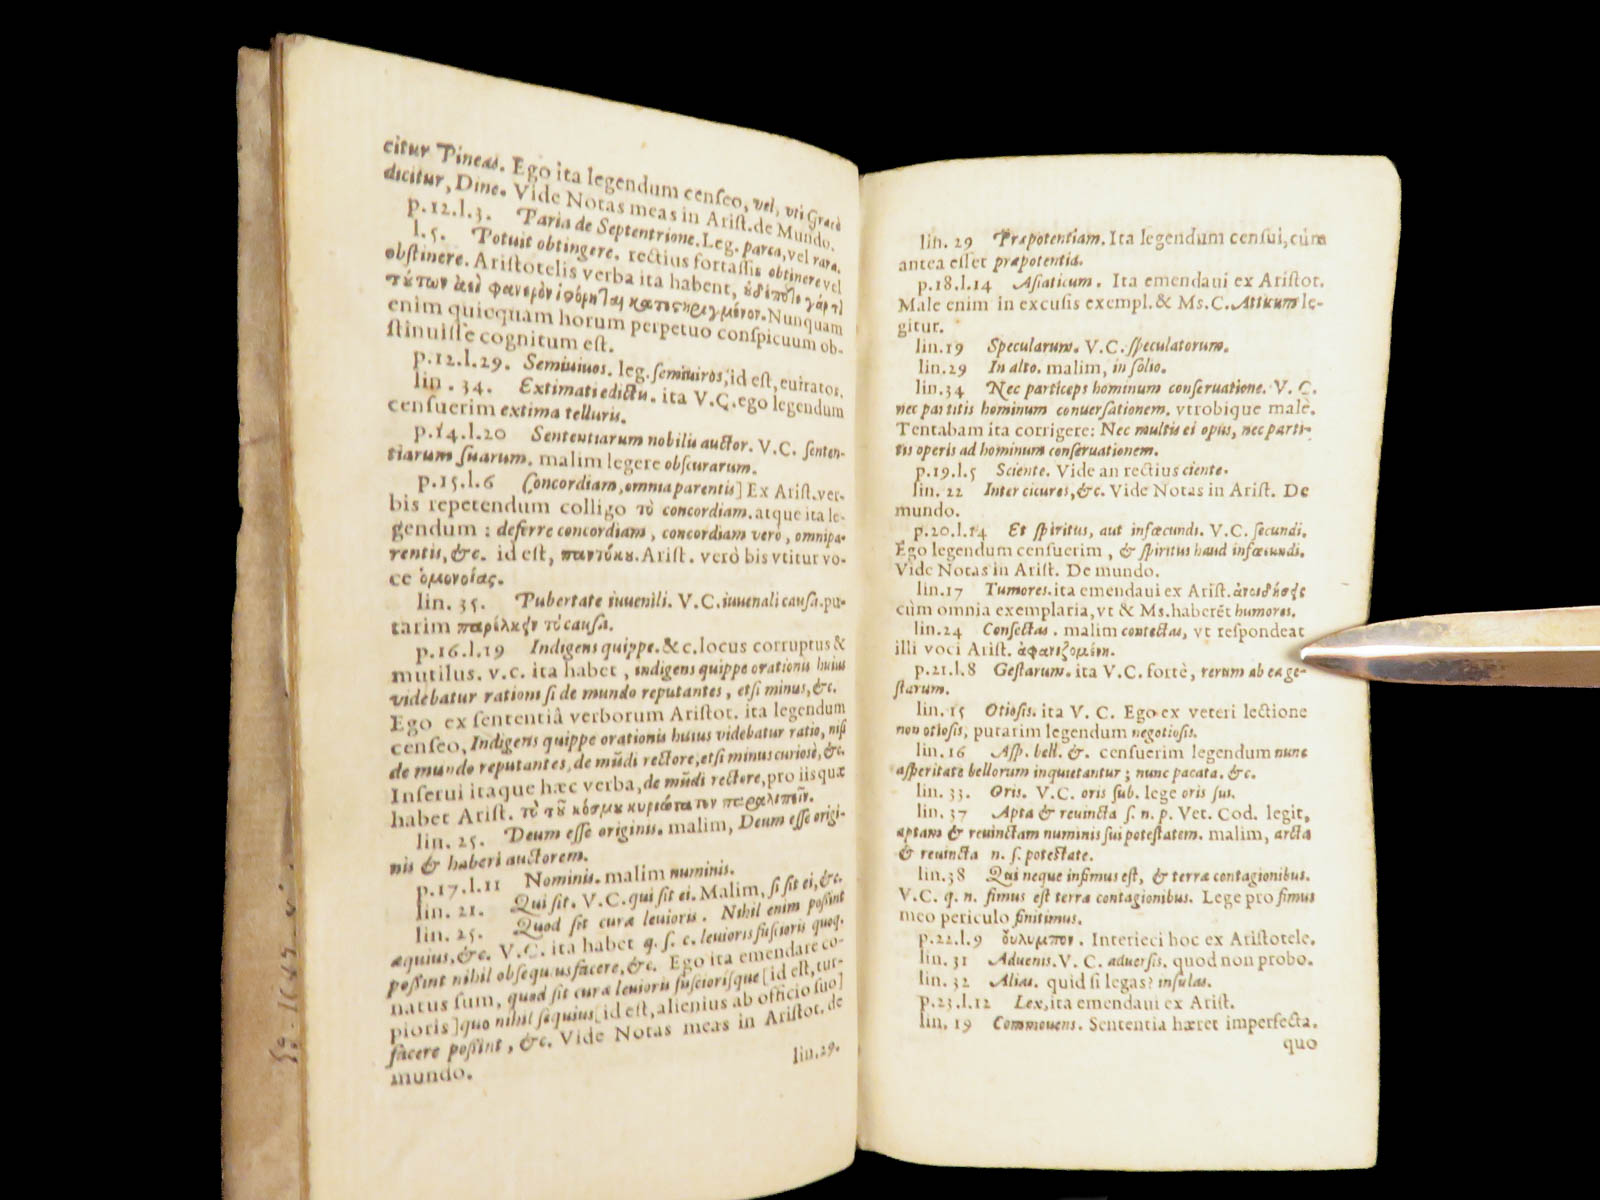 citur Pineas. Ego ita legendum censeo, vel, vti Græcè
dicitur, Dine. Vide Notas meas in Arist. de Mundo.
p.12.l.3. Paria de Septentrione. Leg. parca, vel rara.
l.5. Potuit obtingere. rectius fortassis obtinere vel
obstinere. Aristotelis verba ita habent,
Nunquam
enim quicquam horum perpetuo conspicuum ob-
stinuisse cognitum est.
p.12.l.29. Semiuiuos. leg. semiuiros, id est, euiratos.
lin. 34. Extimatiedictu. ita V.C. ego legendum
censuerim extima telluris.
p.14.l.20 Sententiarum nobiliū auctor. V.C. senten-
tiarum suarum. malim legere obscurarum.
p.15.l.6 Concordiam, omnia parentis] Ex Arist. ver-
bis repetendum colligo τὸ concordiam. atque ita le-
gendum : deferre concordiam, concordiam verò, omnipa-
rentis, &c. id est, παντόκου. Arist. verò bis vtitur vo-
ce ὁμονοίας.
lin. 35. Pubertate iuuenili. V.C. iuuenali causa. pu-
tarim παρέλκειν τὸ causa.
p.16.l.19 Indigens quippe. &c. locus corruptus &
mutilus. v.c. ita habet, indigens quippe orationis huius
videbatur rationi si de mundo reputantes, etsi minus, &c.
Ego ex sententiâ verborum Aristot. ita legendum
censeo, Indigens quippe orationis huius videbatur ratio, nisi
de mundo reputantes, de mūdi rectore, etsi minus curiosè, &c.
Inserui itaque hæc verba, de mūdi rectore, pro iis quæ
habet Arist. τὸ τȣ͂ κόσμȣ κυριώτατον παραλιπεῖν.
lin. 25. Deum esse originis. malim, Deum esse origi-
nis & haberi auctorem.
p.17.l.11 Nominis. malim numinis.
lin. 21. Qui sit. V.C. qui sit ei. Malim, si sit ei, &c.
lin. 25. Quod sit curæ leuioris. Nihil enim possint
æquius, &c. V.C. ita habet q. s. c. leuioris fuscioris quoq.
possint nihil obsequius facere, &c. Ego ita emendare co-
natus sum, quod sit curæ leuioris fuscioriśque [id est, tur-
pioris] quo nihil sequius [id est, alienius ab officio suo]
facere possint, &c. Vide Notas meas in Aristot. de
mundo.
lin. 29.
lin. 29 Præpotentiam. Ita legendum censui, cùm
antea esset præpotentia.
p.18.l.14 Asiaticum. Ita emendaui ex Aristot.
Male enim in excusis exempl. & Ms. C. Atticum le-
gitur.
lin. 19 Specularum. V.C. speculatorum.
lin. 29 In alto. malim, in solio.
lin. 34 Nec particeps hominum conseruatione. V. C.
nec partitis hominum conuersationem. vtrobique malè.
Tentabam ita corrigere: Nec multis ei opus, nec parti-
tis operis ad hominum conseruationem.
p.19.l.5 Sciente. Vide an rectius ciente.
lin. 22 Inter cicures, &c. Vide Notas in Arist. De
mundo.
p.20.l.14 Et spiritus, aut infœcundi. V.C. fecundi.
Ego legendum censuerim, & spiritus haud infœcundi.
Vide Notas in Arist. De mundo.
lin. 17 Tumores. ita emendaui ex Arist.
cùm omnia exemplaria, vt & Ms. haberēt humores.
lin. 24 Consectas. malim contectas, vt respondeat
illi voci Arist. ἀφανιζομένη.
p.21.l.8 Gestarum. ita V.C. fortè, rerum ab ea ge-
starum.
lin. 15 Otiosis. ita V. C. Ego ex veteri lectione
non otiosis, putarim legendum negotiosis.
lin. 16 Asp. bell. &. censuerim legendum nunc
asperitate bellorum inquietantur ; nunc pacata. &c.
lin. 33. Oris. V.C. oris sub. lege oris sus.
lin. 37 Apta & reuincta s. n. p. Vet. Cod. legit,
aptam & reuinctam numinis sui potestatem. malim, arcta
& reuincta n. s. potestate.
lin. 38 Qui neque infimus est, & terræ contagionibus.
V.C. q. n. fimus est terræ contagionibus. Lege pro fimus
meo periculo finitimus.
p.22.l.9 ὄυλυμπον. Interieci hoc ex Aristotele.
lin. 31 Aduenis. V. C. aduersis. quod non probo.
lin. 32 Alias. quid si legas? insulas.
p.23.l.12 Lex, ita emendaui ex Arist.
lin. 19 Commouens. Sententia hæret imperfecta.
quo